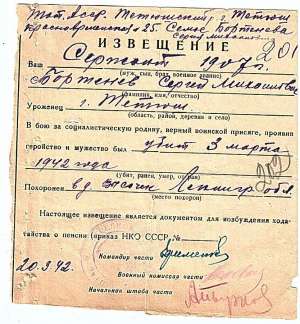 Тат. Асср. Тетюшский, г. Тетюш
Красноармейская 25. Семье Бортенева
Сергея Михайлович
201
ИЗВЕЩЕНИЕ
Ваш Сержант 1907 г.
(муж, сын, брат, военное звание)
Бортенев Сергей Михайлович
(фамилия, имя, отчество)
Уроженец г. Тетюш
(область, район, деревня и село)
В бою за социалистическую родину, верный воинской присяге, проявив
геройство и мужество был убит 3 марта
1942 года
(убит, ранен, умер, оправ)
Похоронен в д. Ленингр обл.
(место похорон)
Настоящее извещение является документом для возбуждения хода-
тайства о пенсии (приказ НКО СССР №
Командир части
Военный комиссар части
20.3.42.
Начальник штаба части